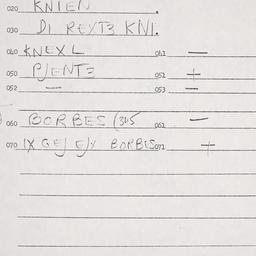 020 KNIEN
030 DI REXTЗ KNI.
040 KNEXL 041 —
050 PJENTЗ 051 +
052 — 053 =
060 BORBES (345 061 —
070 IX GEJ EJX BORBIS 071 +